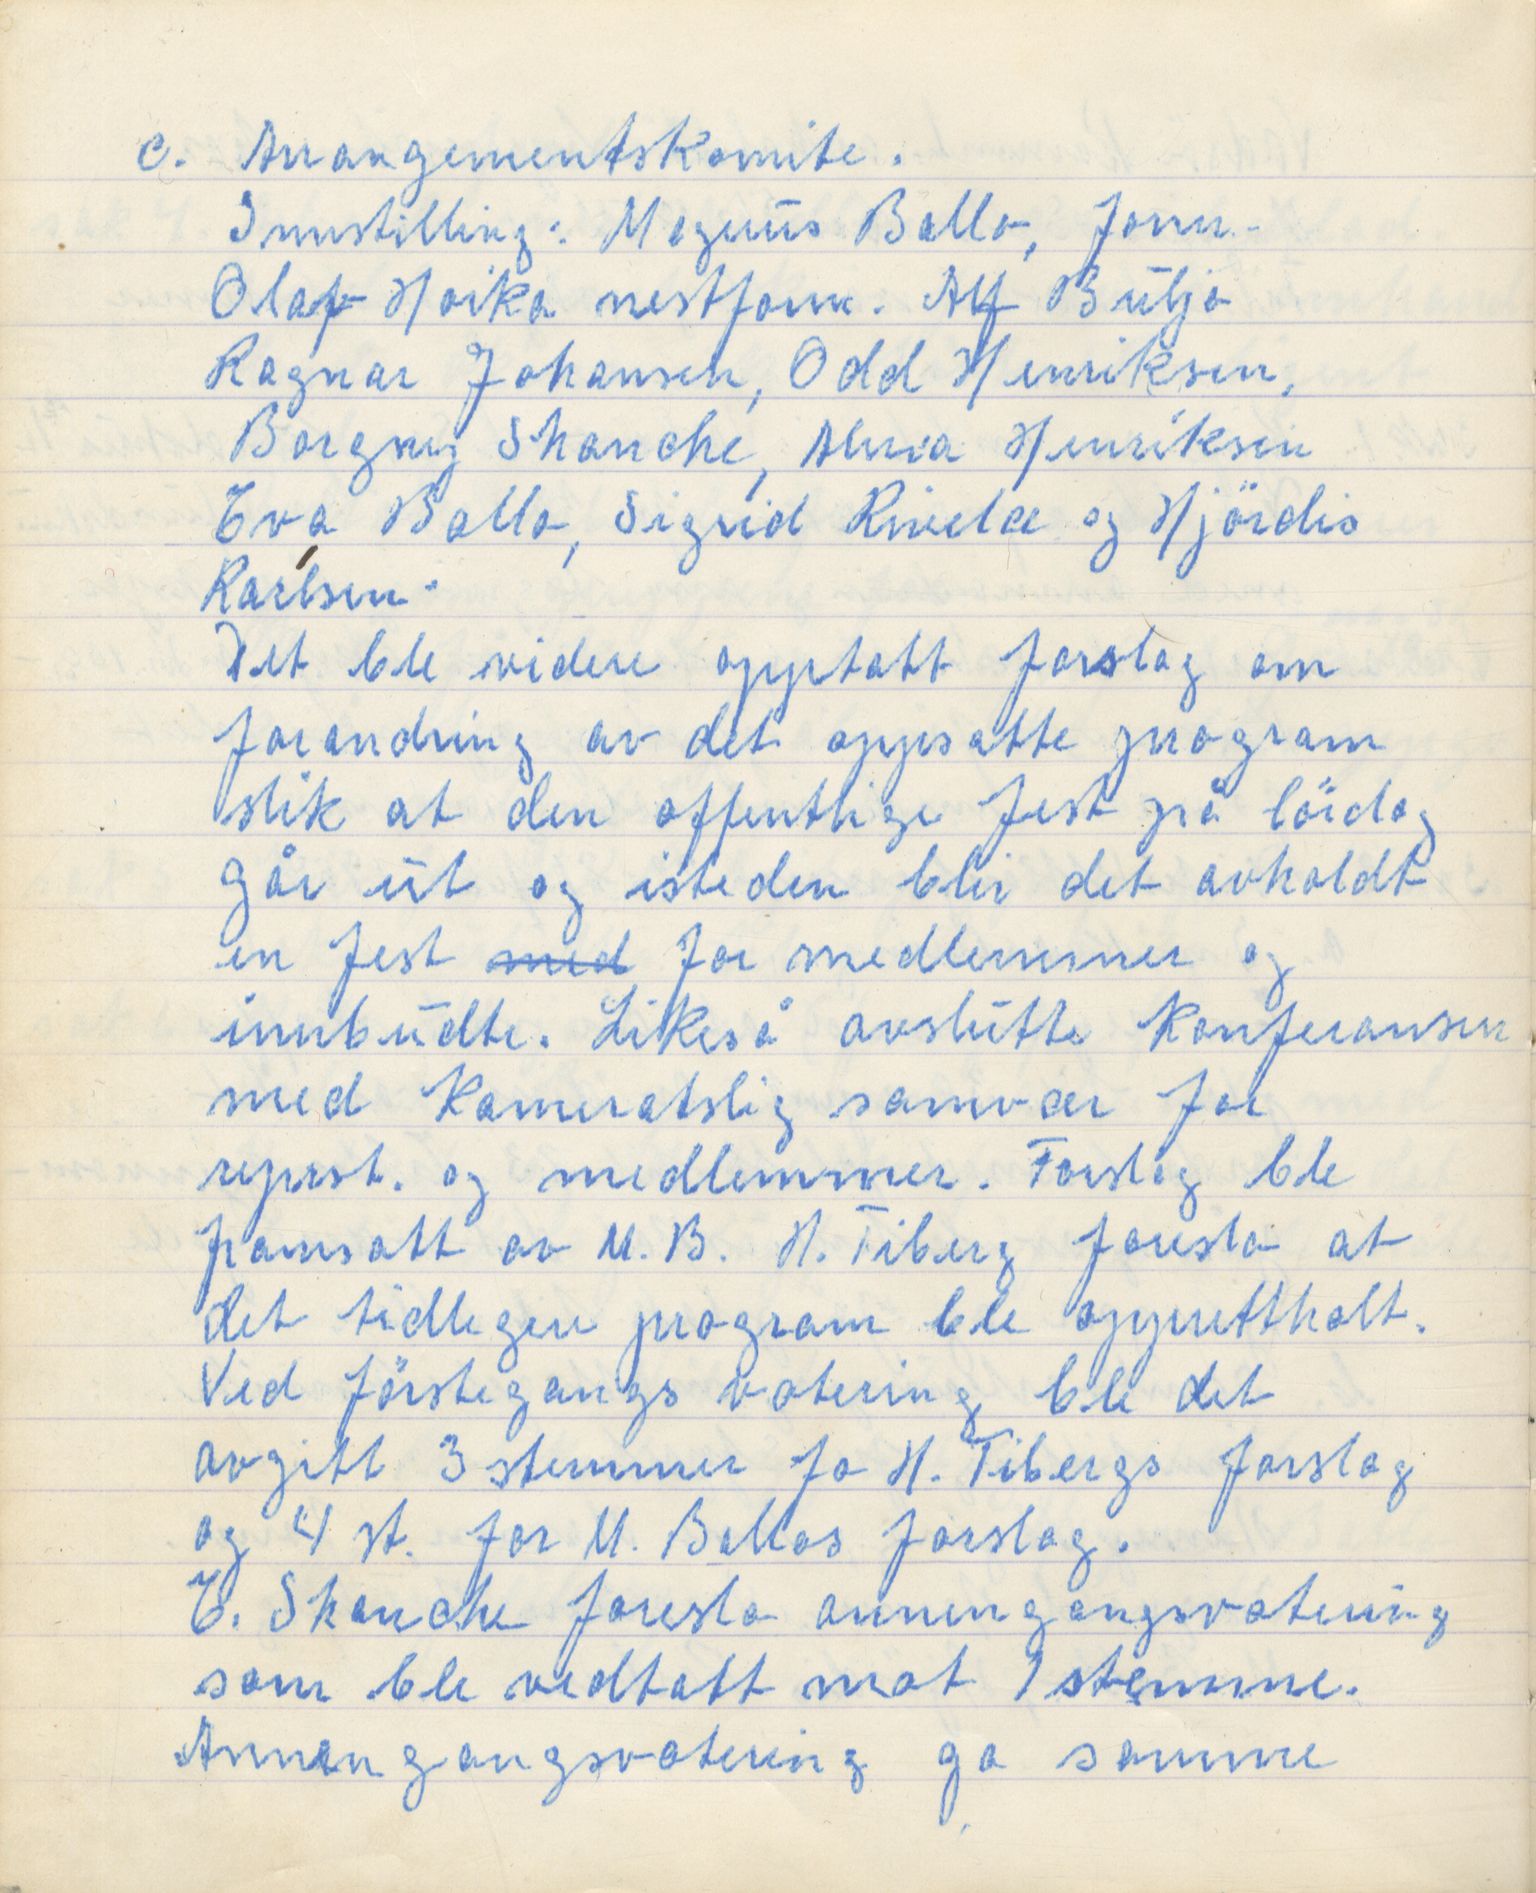 c. Arrangementskomite.
Innstilling: Magnus Ballo, form.
Olaf Hoika nestform. Alf Buljo
Ragnar Johansen, Odd Henriksen,
Borgny Skanche, Alma Henriksen
Eva Ballo, Sigrid og Hjördis
Karlsen.
Det ble videre opptatt forslag om
forandring av det oppsatte program
slik at den offentlige fest på löidag
går ut og isteden blir det avholdt
en fest med for medlemmer og
innbudte. Likeså avslutte konferansen
med kameratslig samvær for
reprst. og medlemmer. Forslag ble
framsatt av M. B. H. Tiberg foreslo at
det tidlegere program ble opprettholt.
Ved förstegangs votering ble det
avgitt 3 stemmer fo H. Tibergs forslag
og 4 st. for M. Ballos forslag.
E. Skanche foreslo annengangsvotering
som ble vedtatt mot 1 stemme.
Annengangsvotering ga samme